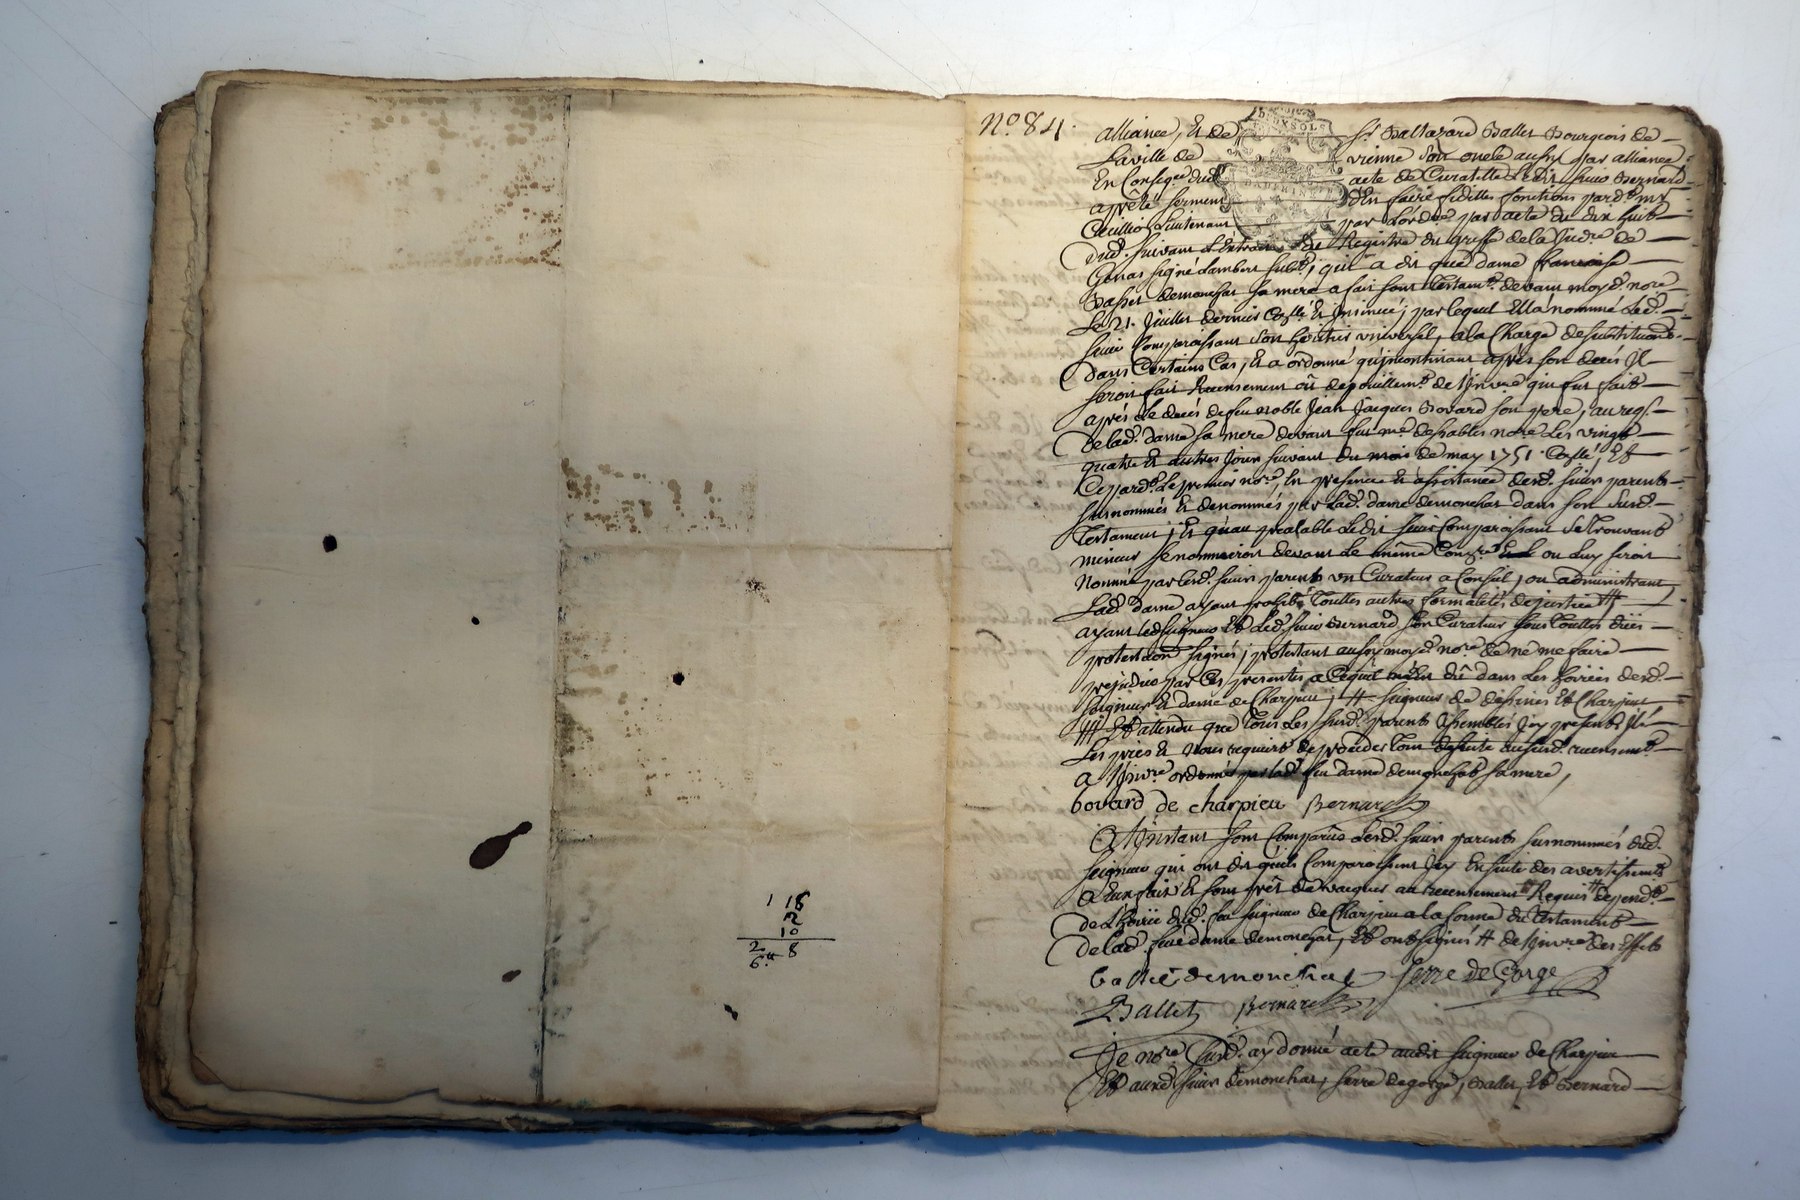 1 18
2
10
2 8
6
N.o 84.
alliance, et de Sr. Baltazard Ballet Bourgeois de
La ville de vienne son oncle aussy par alliance
En Conseq.ce dud. acte de Curatelle Ledit sieur Bernard
a prêté serment d'En faire fidelles fonctions pard.t mr
Lieutenant par acte du dix huit
dud. suivant L'Extrait du Registre du greffe de la Jud.re de
Genas signé Lambert ; qu'il a dit que dame francoise
Basset demonchat sa mere a fait son Testam.t devant moyd. no.re
Le 21. Juillet dernier Coll.é et Insinué ; par lequel Elle a nommé Led.
sieur Comparoissant son heritier universel, a la Charge de substitution
dans Certains Cas, Et a ordonné qu'incontinant après son decés Il
seroit fait Recensement ou depouillem.t de L'Inv.re qui fut fait
après Le decés de feu noble Jean Jacques Bovard son pere, au req.
de lad. dame sa mere devant feu me. desables no.re Les vingt
quatre et autres Jours suivant du mois de may 1751. Coll.é, Et
Ce pard.t Le premier no.re, En presence et assistance desd. sieurs parents
surnommés et denommés par Lad. dame demonchat dans son susd.
Testament ; et qu'au prealable Le dit sieur Comparoissant se Trouvant
mineur se nommeroit devant Le même ou Luy seroit
Nommé par Lesd. sieurs parents un Curateur a Conseil, ou administrant
Lad. dame ayant prohibé Touttes autres formalités de justice #
ayant led. seigneur Et Led. sieur Bernard son Curateur sous Touttes dües
protestaons signés ; protestant aussy moyd. no.re de ne me faire
prejudice par Ces presentes a Ce qui m'est dû dans Les hoiries desd.
seigneur et dame de Charpieu ; # seigneur de dessines Et Charpieu
# Et attendu que Tous Les susd. parents assemblés Icy presents Il
Les pries et nous requiert de proceder Tout de suite aud. recensem.t
a L'Inv.re ordonné par lad. feu dame demonchat sa mere,
bovard de charpieu Bernard
A L'Instant sont Comparus Lesd. sieurs parents surnommés dud.
seigneur qui ont dit qu'ils Comparoissent Icy Ensuite des avertissem.ts
a Eux fait et sont prêt de vacquer au recensement # Requis depend.t
de L'hoirie dud. feu seigneur de Charpieu a la forme du Testament
de lad. feüe dame demonchat, Et ont signés # de L'Inv.re des Effets
basset demonchat Serre de Gorge
Ballet Bernard
Je no.re susd. ay donné acte audit seigneur de Charpieu
Et auxd. sieurs demonchat, serre degorge, Ballet, Et Bernard